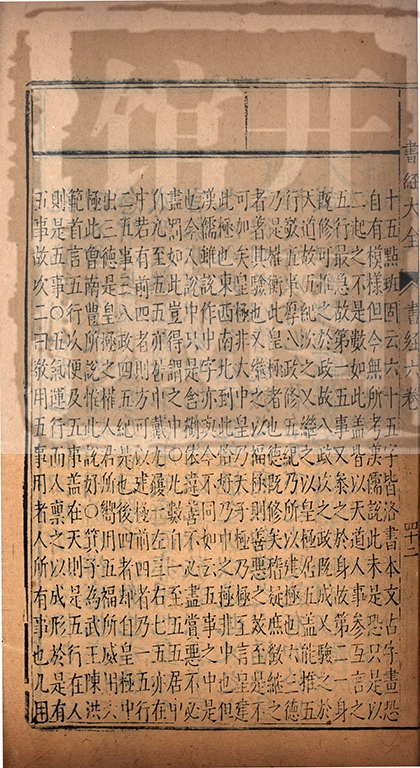 十五點班固云六十五字皆洛書本文古字畫恐
自有模樣但今無所考漢儒說此未是恐只是以
二起之不是數如此蓋皆以天道人事參互言之
五行最急故第一五事又參之於身故第二身
既修可推之於政故八政次之政既成又驗之於
天道故五紀次之又繼之以皇極居五蓋能推五
行敬五事厚八政修五紀乃所以建極也六三德
乃是權衡此皇極者也德既修矣稽疑庶徵繼之
者著其驗也又繼之以福極則善惡之效至是不
可加矣皇極非大中皇乃天子極乃極至言皇建
此極也東西南北到此恰好乃中之極非中也但
漢儒雖說作中字亦與今不同如云五事之中是
也今人說中只是含糊依違善不必盡賞惡不必
盡罰如此豈得謂之中○九數自一至五五居中
自九至五亦五居中戴九履一左三右七五亦在
中若有前四者則方可以建極前四者乃一五行
二五事三八政四五紀是也後四者却自皇極中
出三德是皇極之權人君所嚮用五福所威用六
極此曾南豐所說諸儒惟此說好○箕子為武王陳洪
範首言五行便及五事蓋在天則是五行在人
則是五事○五氣運行而人稟之以成形於是有
五事故次二曰敬用五事用者人之所有事也凡用
書經大全
書經六卷
四十二